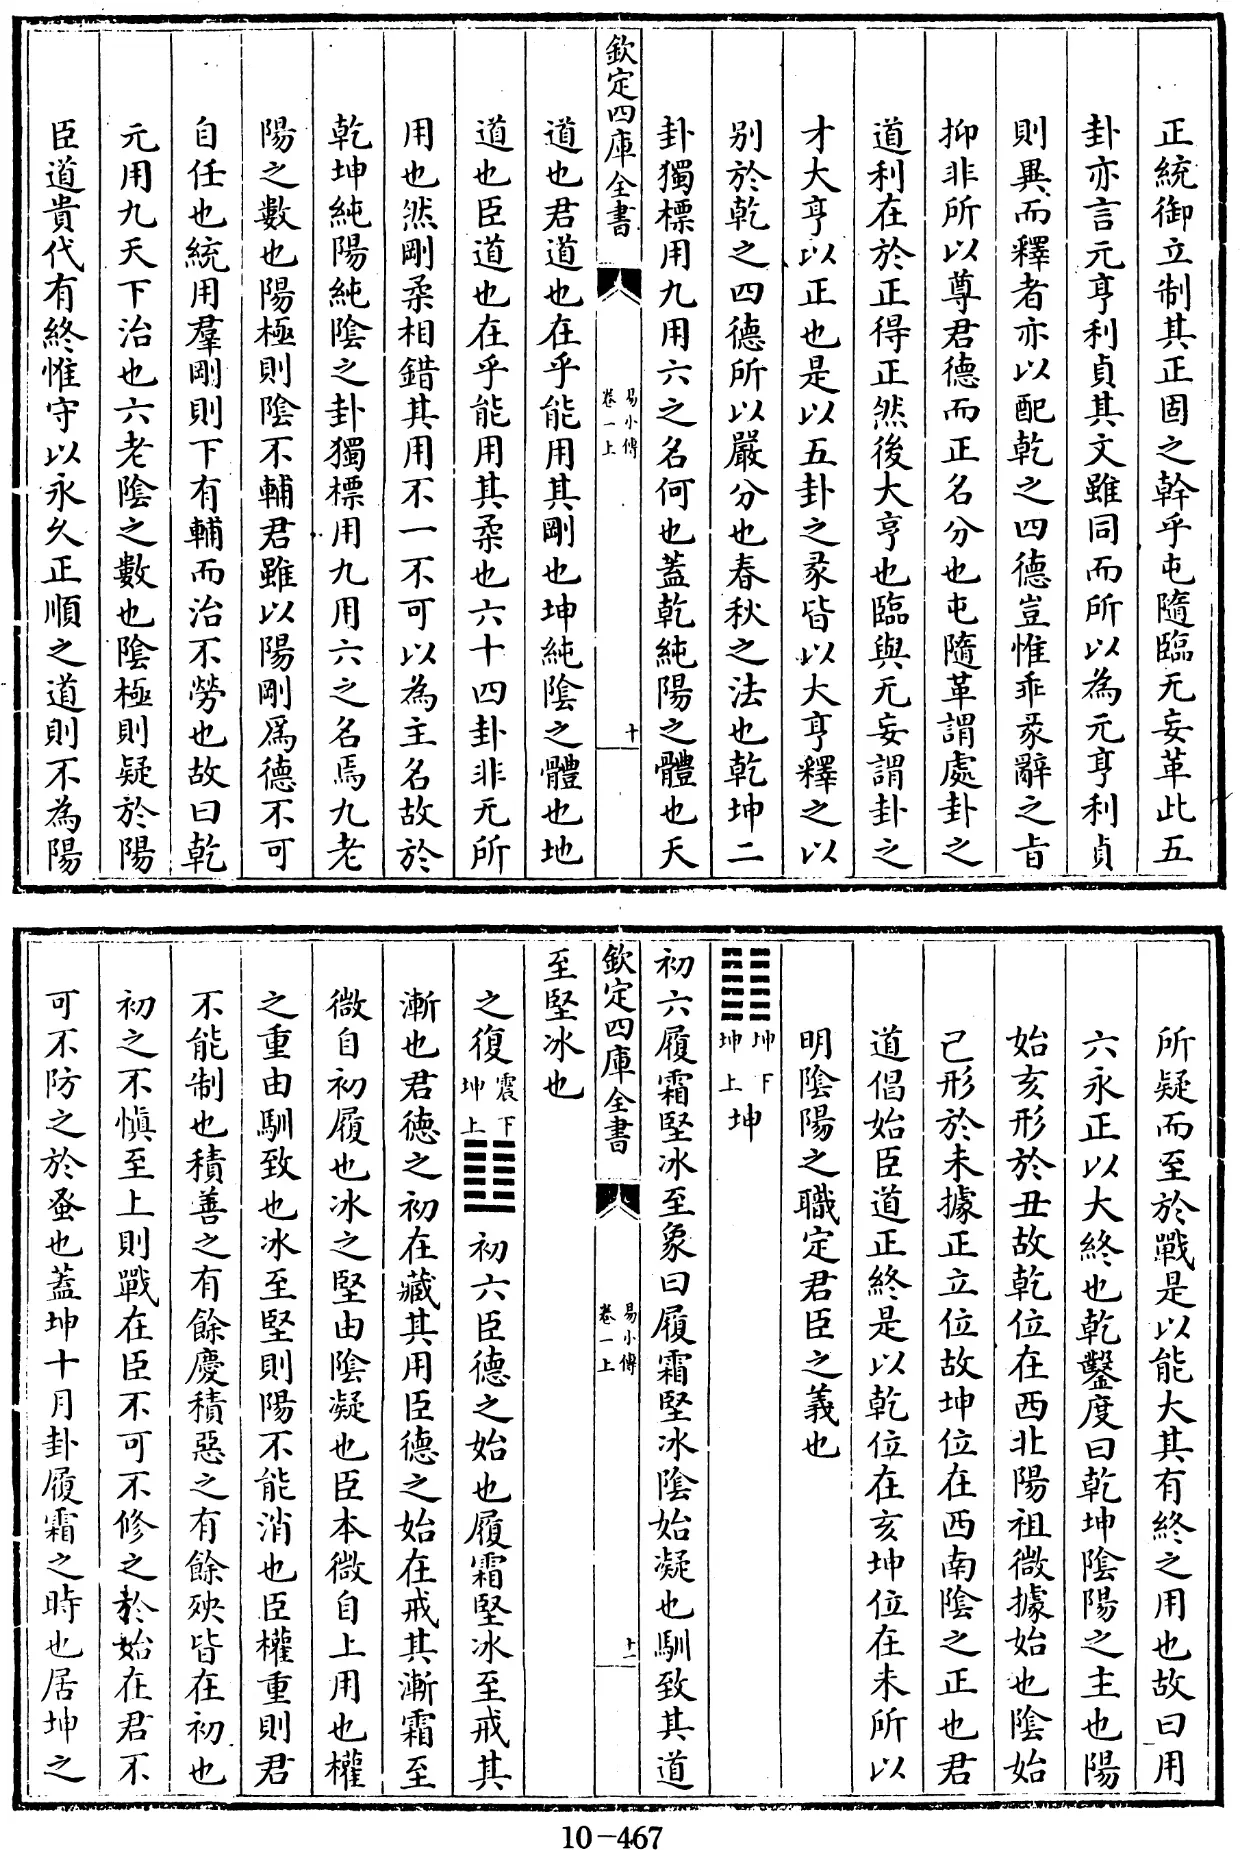 正統御立制其正固之幹乎屯隨臨无妄革此五
卦亦言元亨利貞其文雖同而所以為元亨利貞
則異而釋者亦以配乾之四德豈惟乖彖辭之旨
抑非所以尊君德而正名分也屯隨革謂處卦之
道利在於正得正然後大亨也臨與无妄謂卦之
才大亨以正也是以五卦之彖皆以大亨釋之以
别於乾之四德所以嚴分也春秋之法也乾坤二
卦獨標用九用六之名何也蓋乾純陽之體也天
欽定四庫全書
易小傳
卷一上
十
道也君道也在乎能用其剛也坤純陰之體也地
道也臣道也在乎能用其柔也六十四卦非无所
用也然剛柔相錯其用不一不可以為主名故於
乾坤純陽純陰之卦獨標用九用六之名焉九老
陽之數也陽極則陰不輔君雖以陽剛爲德不可
自任也統用羣剛則下有輔而治不勞也故曰乾
元用九天下治也六老陰之數也陰極則疑於陽
臣道貴代有終惟守以永久正順之道則不為陽
所疑而至於戰是以能大其有終之用也故曰用
六永正以大終也乾鑿度曰乾坤陰陽之主也陽
始亥形於丑故乾位在西北陽祖微據始也陰始
已形於未據正立位故坤位在西南陰之正也君
道倡始臣道正終是以乾位在亥坤位在未所以
明陰陽之職定君臣之義也
䷁坤下坤上坤
初六履霜堅冰至象曰履霜堅冰陰始凝也馴致其道
欽定四庫全書
易小傳
卷一上
十一
至堅冰也
之復震下坤上䷗初六臣德之始也履霜堅冰至戒其
漸也君德之初在藏其用臣德之始在戒其漸霜至
微自初履也冰之堅由陰凝也臣本微自上用也權
之重由馴致也冰至堅則陽不能消也臣權重則君
不能制也積善之有餘慶積惡之有餘殃皆在初也
初之不慎至上則戰在臣不可不修之於始在君不
可不防之於蚤也蓋坤十月卦履霜之時也居坤之
10-467